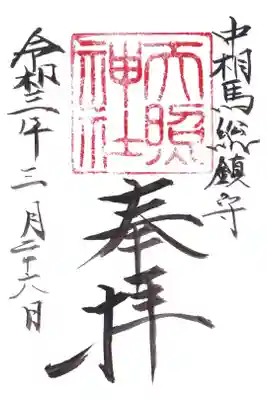 中相馬総鎮守
天照神社
奉拝
令和三年三月二十八日